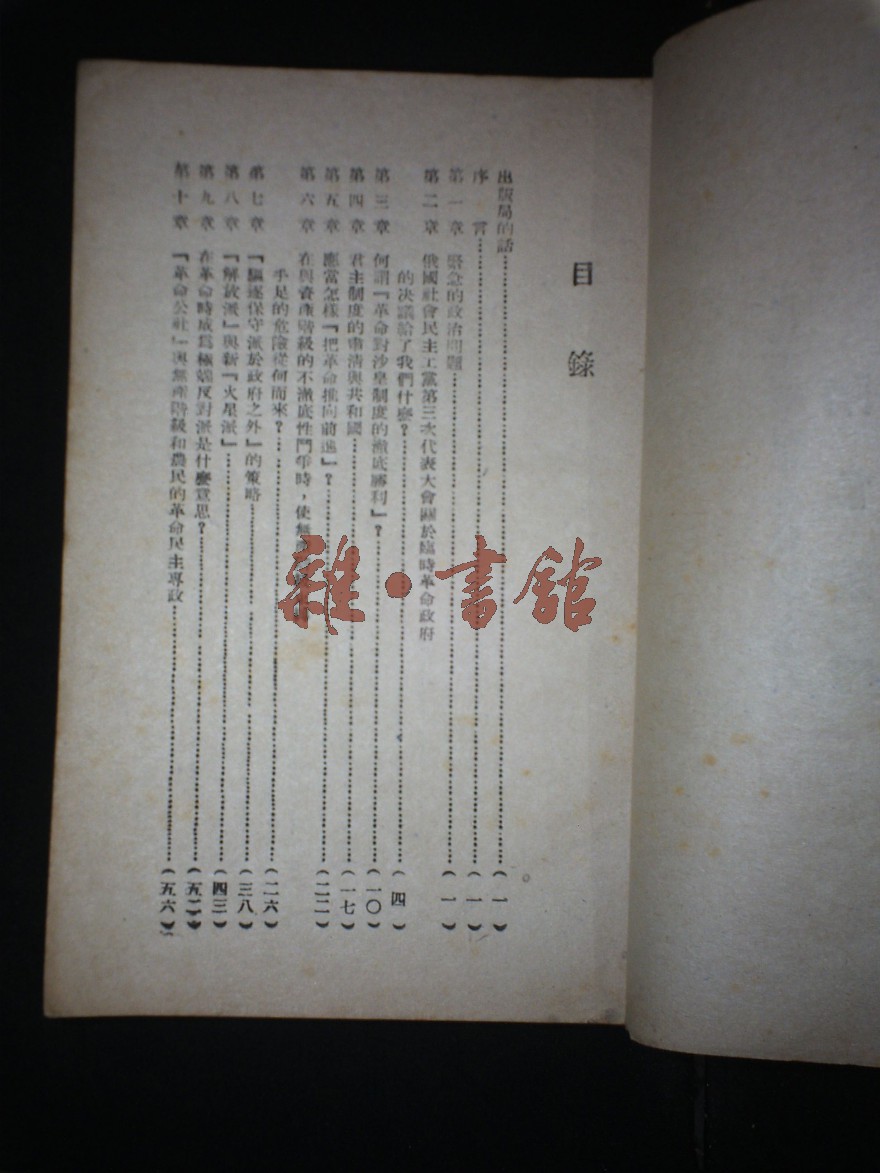 目錄
出版局的話……(一)
序言……(一)
第一章 緊急的政治問題……(一)
第二章 俄國社會民主工黨第三次代表大會關於臨時革命政府
的決議給了我們什麼?……(四)
第三章 何謂『革命對沙皇制度的澈底勝利』?……(一〇)
第四章 君主制度的肅清與共和國……(一七)
第五章 應當怎樣『把革命推向前進』?……(二二)
第六章 在與資產階級的不澈底性鬥爭時,使無
乎是的危險從何而來?……(二六)
第七章 『驅逐保守派於政府之外』的策略……(三八)
第八章 『解放派』與新『火星派』……(四三)
第九章 在革命時成爲極端反對派是什麼意思?……(五二)
第十章 『革命公社』與無產階級和農民的革命民主專政……(五六)
雜·書館